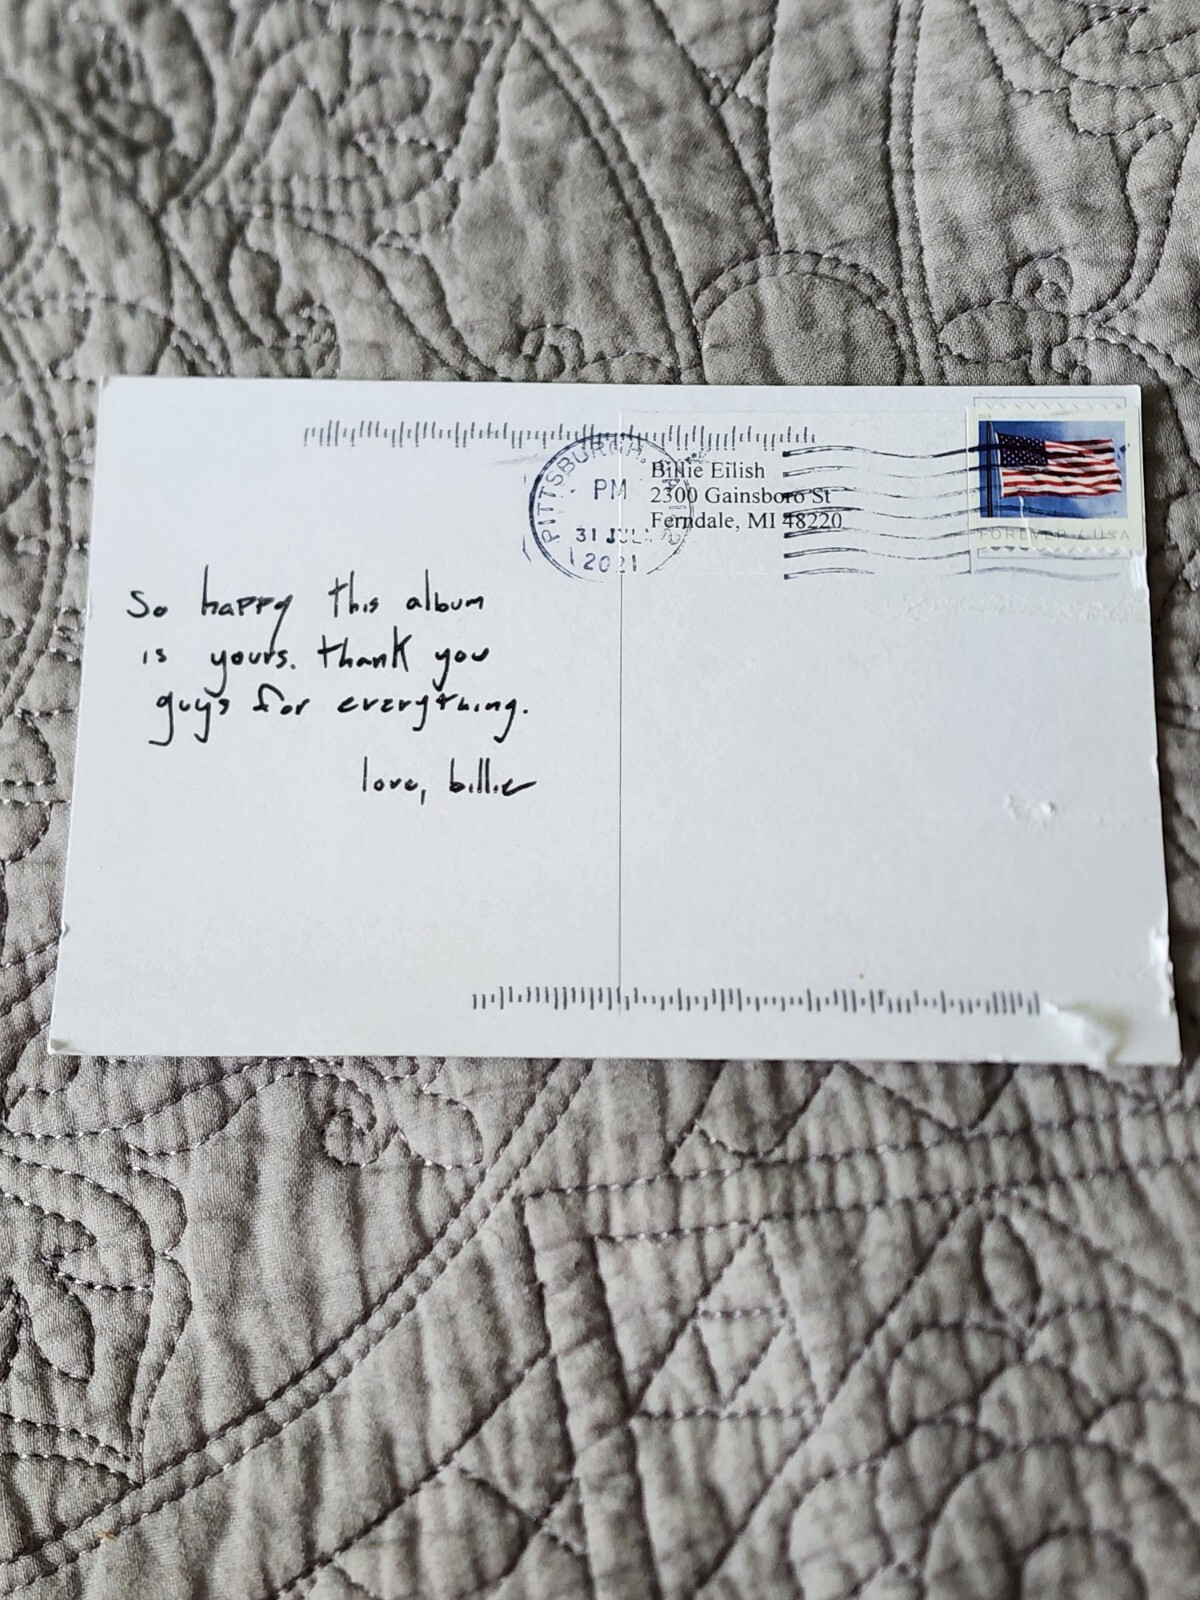 PITTSBURGH
PM
31 JUL
2021
Billie Eilish
2300 Gainsboro St
Ferndale, MI 48220
FOREVER / USA
So happy this album
is yours. thank you
guys for everything.
love, billie